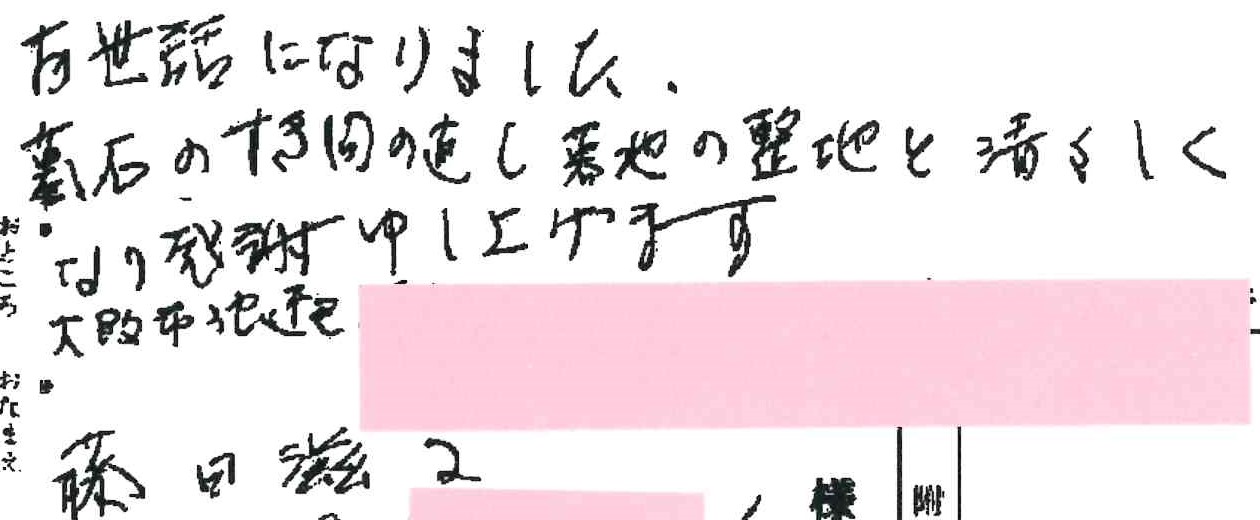 お世話になりました.
墓石のすき間の直し墓地の整地と清々しく
なり感謝申し上げます
おところ
大阪市
おなまえ
藤田滋
様